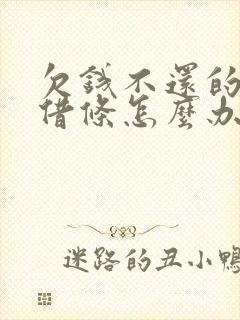 欠錢不還的
借條怎麼办
迷路的丑小鴨